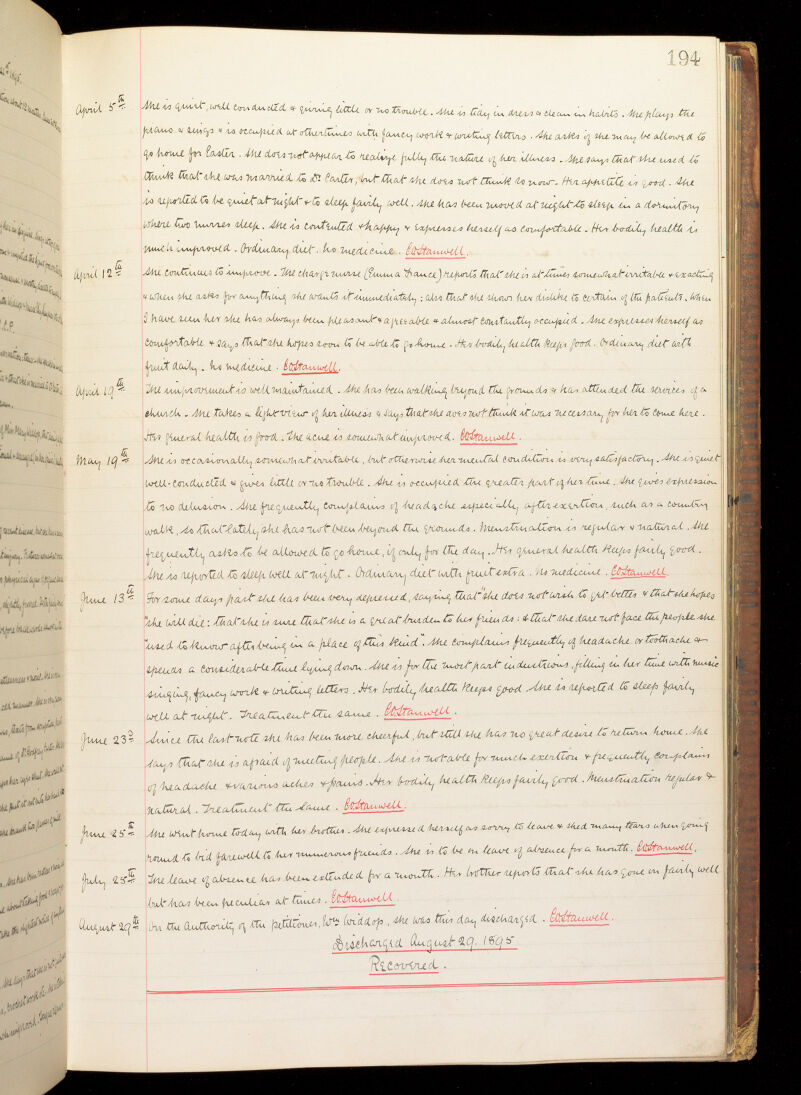 194
April 5th She is quiet, well conducted & giving little or no trouble. She is tidy in dress & clean in habits. She plays the
piano & sings & is occupied at other times with fancy work & writing letters. She asks if she may be allowed to
go home for Easter. She does not appear to realize fully the nature of her illness. She says that she used to
think that she was married to Dr. Carter, but that she does not think so now. Her appetite is good. She
is reported to be quiet at night & to sleep fairly well. She has been moved at night to sleep in a dormitory
where two nurses sleep. She is contented & happy & expresses herself as comfortable. Her bodily health is
much improved. Ordinary diet. No medicine. COStanwell.
April 12th She continues to improve. The charge nurse (Emma Hance) reports that she is at times somewhat irritable & exacting
& when she asks for anything she wants it immediately: also that she shows her dislike to certain of the patients. When
I have seen her she has always been pleasant & agreeable & almost constantly occupied. She expresses herself as
comfortable & says that she hopes soon to be able to go home. Her bodily health keeps good. Ordinary diet with
fruit daily. No medicine. COStanwell.
April 19th The improvement is well maintained. She has been walking beyond the grounds & has attended the services of a
church. She takes a light view of her illness & says that she does not think it was necessary for her to come here.
Her general health is good. The acne is somewhat improved. COStanwell.
May 19th She is occasionally somewhat irritable, but otherwise her mental condition is very satisfactory. She is quiet
well-conducted & gives little or no trouble. She is occupied the greater part of her time. She gives expression
to no delusion. She frequently complains of headache especially after exertion, such as a country
walk, so that lately she has not been beyond the grounds. Menstruation is regular & natural. She
frequently asks to be allowed to go home, if only for the day. Her general health keeps fairly good.
She is reported to sleep well at night. Ordinary diet with fruit extra. No medicine. COStanwell.
June 13th For some days past she has been very depressed, saying that "she does not wish to get better & that she hopes
"she will die: that she is sure that she is a great burden to her friends: & that she dare not face the people she
"used to know after being in a place of this kind". She complains frequently of headache or toothache &
spends a considerable time lying down. She is for the most part industrious, filling in her time with music
singing, fancy work & writing letters. Her bodily health keeps good. She is reported to sleep fairly
well at night. Treatment the same. COStanwell.
June 23d Since the last note she has been more cheerful, but still she has no great desire to return home. She
says that she is afraid of meeting people. She is not able for much exertion & frequently complains
of headache & various aches & pains. Her bodily health keeps fairly good. Menstruation regular &
natural. Treatment the same. COStanwell.
June 25th She went home today with her brother. She expressed herself as sorry to leave & shed many tears when going
round to bid farewell to her numerous friends. She is to be on leave of absence for a month. COStanwell.
July 25th The leave of absence has been extended for a month. Her brother reports that she has gone on fairly well
but has been peculiar at times. COStanwell.
August 29th On the authority of the petitioner, Wm Widdop, she was this day discharged. COStanwell.
Discharged August 29. 1895
Recovered.